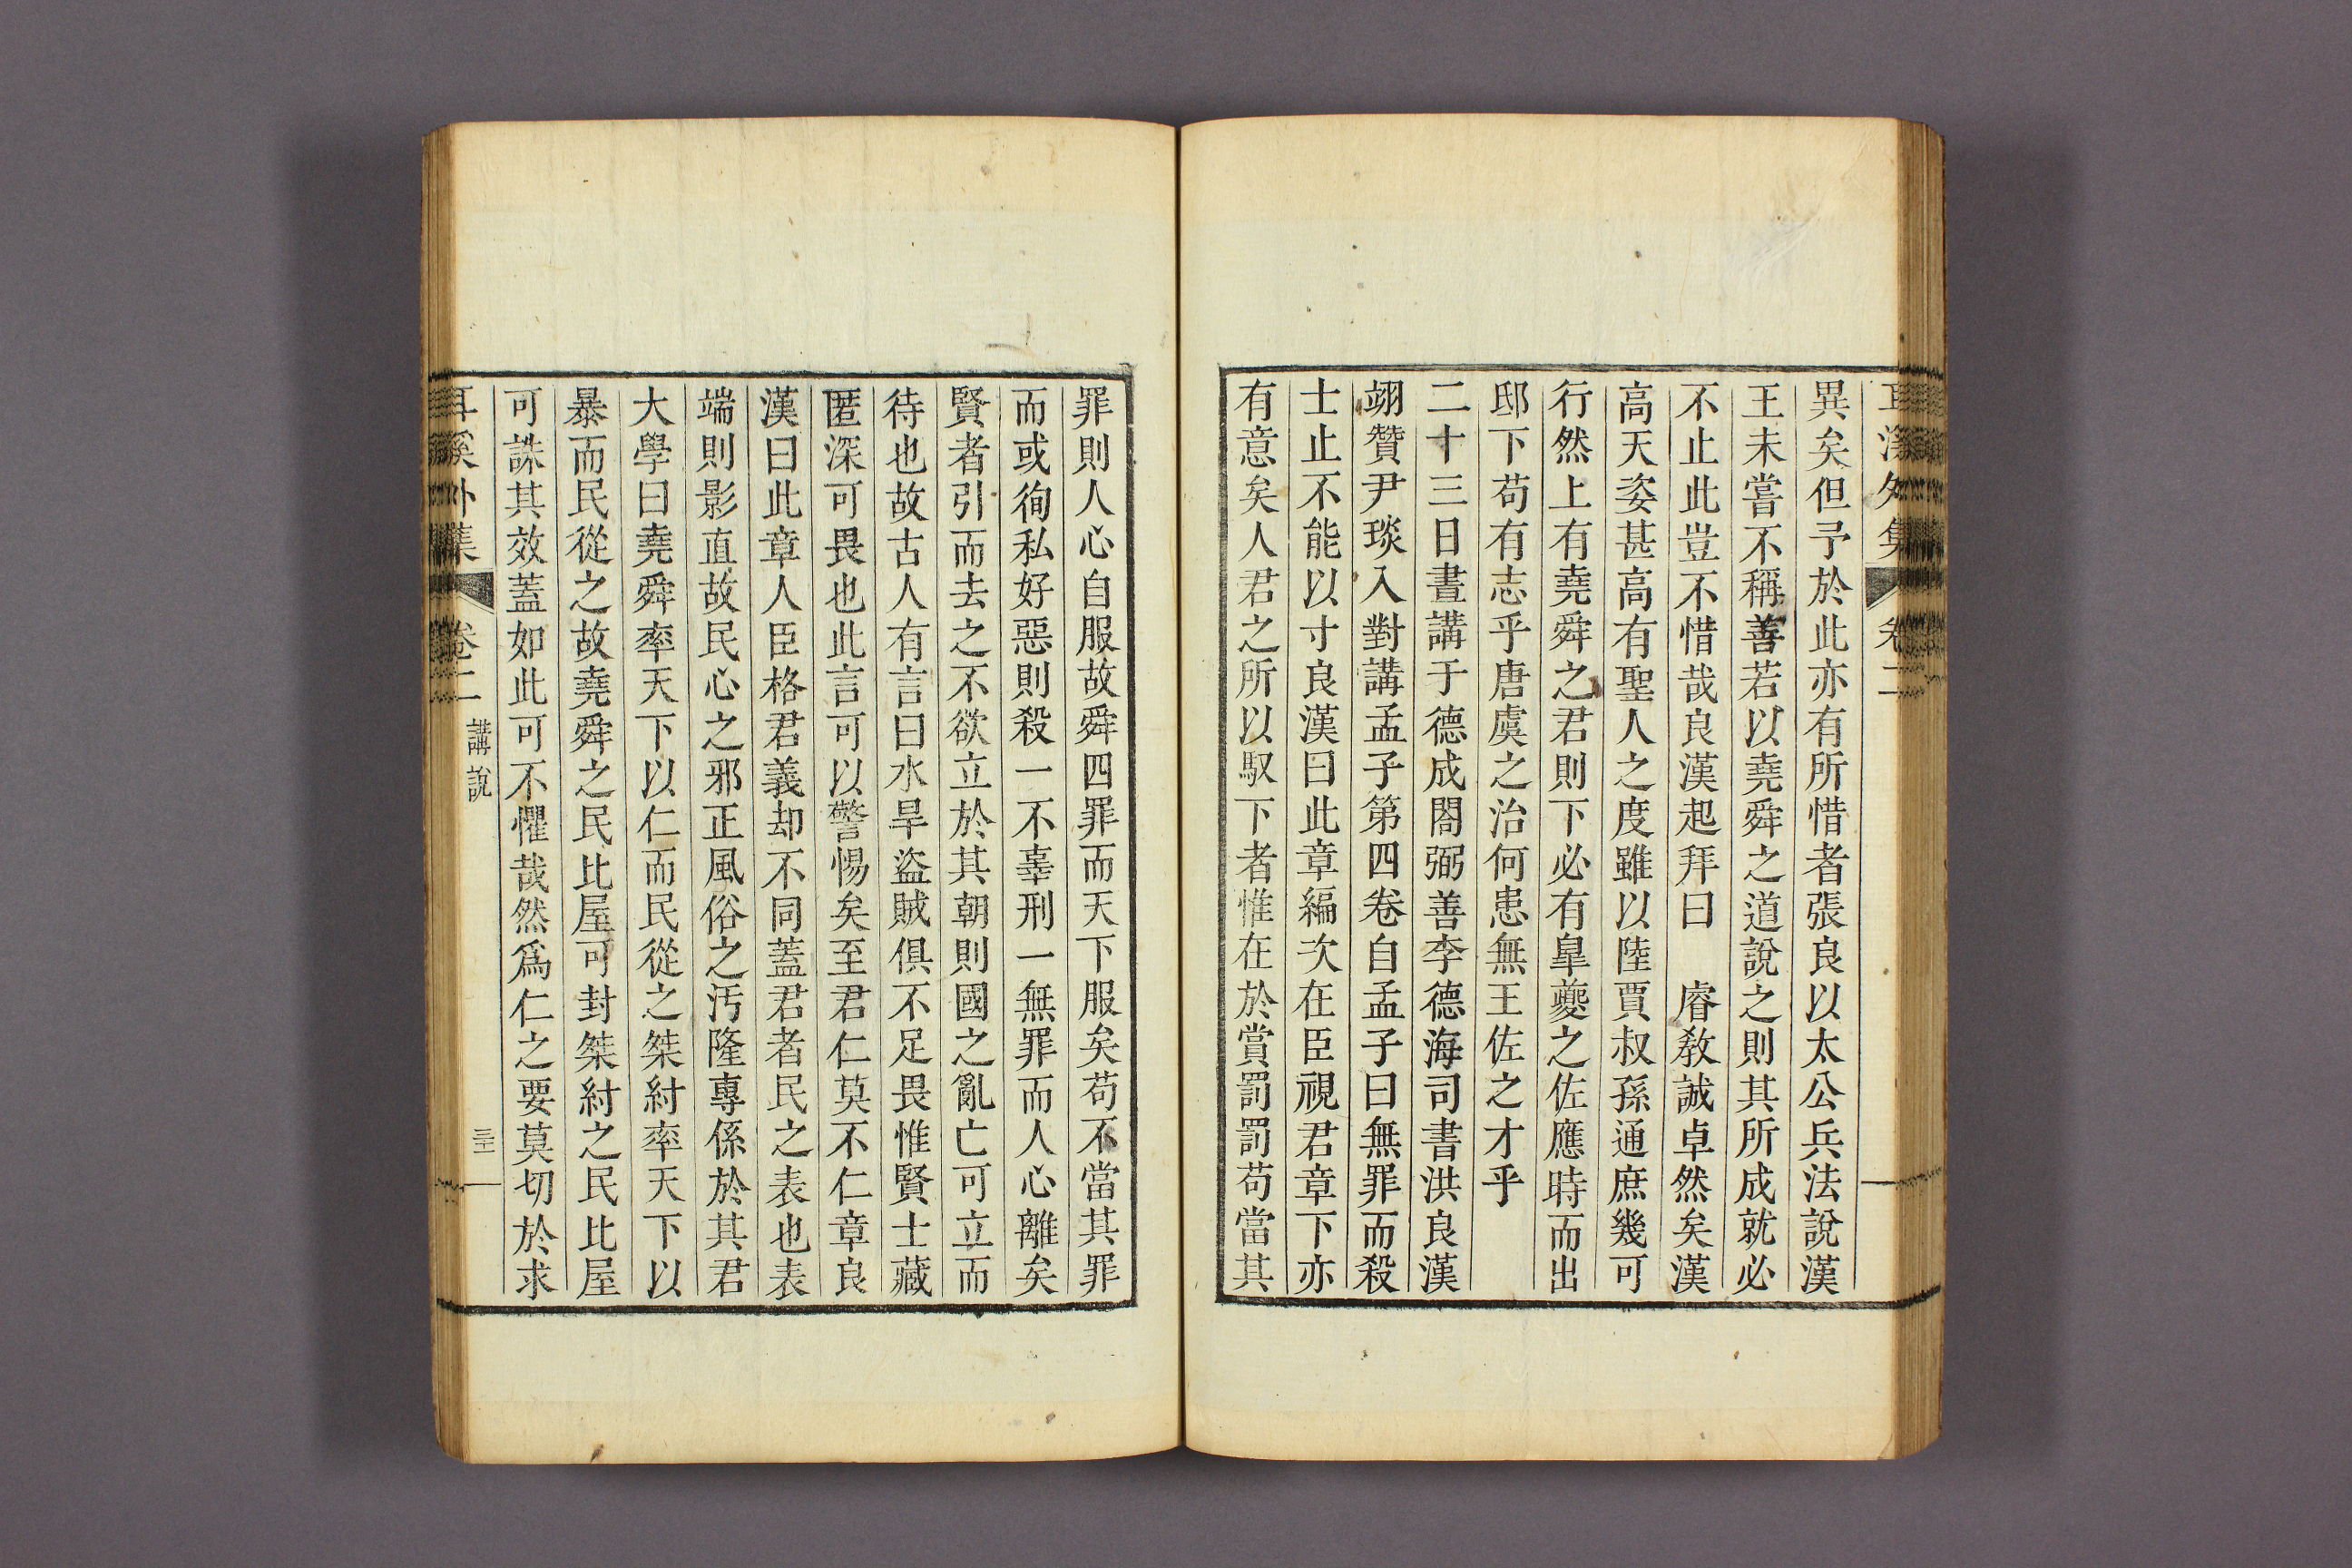 耳溪外集 卷二
異矣但予於此亦有所惜者張良以太公兵法說漢
王未嘗不稱善若以堯舜之道說之則其所成就必
不止此豈不惜哉良漢起拜曰 睿敎誠卓然矣漢
高天姿甚高有聖人之度雖以陸賈叔孫通庶幾可
行然上有堯舜之君則下必有皐夔之佐應時而出
邸下苟有志乎唐虞之治何患無王佐之才乎
二十三日晝講于德成閤弼善李德海司書洪良漢
翊贊尹琰入對講孟子第四卷自孟子曰無罪而殺
士止不能以寸良漢曰此章編次在臣視君章下亦
有意矣人君之所以馭下者惟在於賞罰罰苟當其
罪則人心自服故舜四罪而天下服矣苟不當其罪
而或徇私好惡則殺一不辜刑一無罪而人心離矣
賢者引而去之不欲立於其朝則國之亂亡可立而
待也故古人有言曰水旱盜賊俱不足畏惟賢士藏
匿深可畏也此言可以警惕矣至君仁莫不仁章良
漢曰此章人臣格君義却不同蓋君者民之表也表
端則影直故民心之邪正風俗之汚隆專係於其君
大學曰堯舜率天下以仁而民從之桀紂率天下以
暴而民從之故堯舜之民比屋可封桀紂之民比屋
可誅其效蓋如此可不懼哉然爲仁之要莫切於求
耳溪外集 卷二 講說